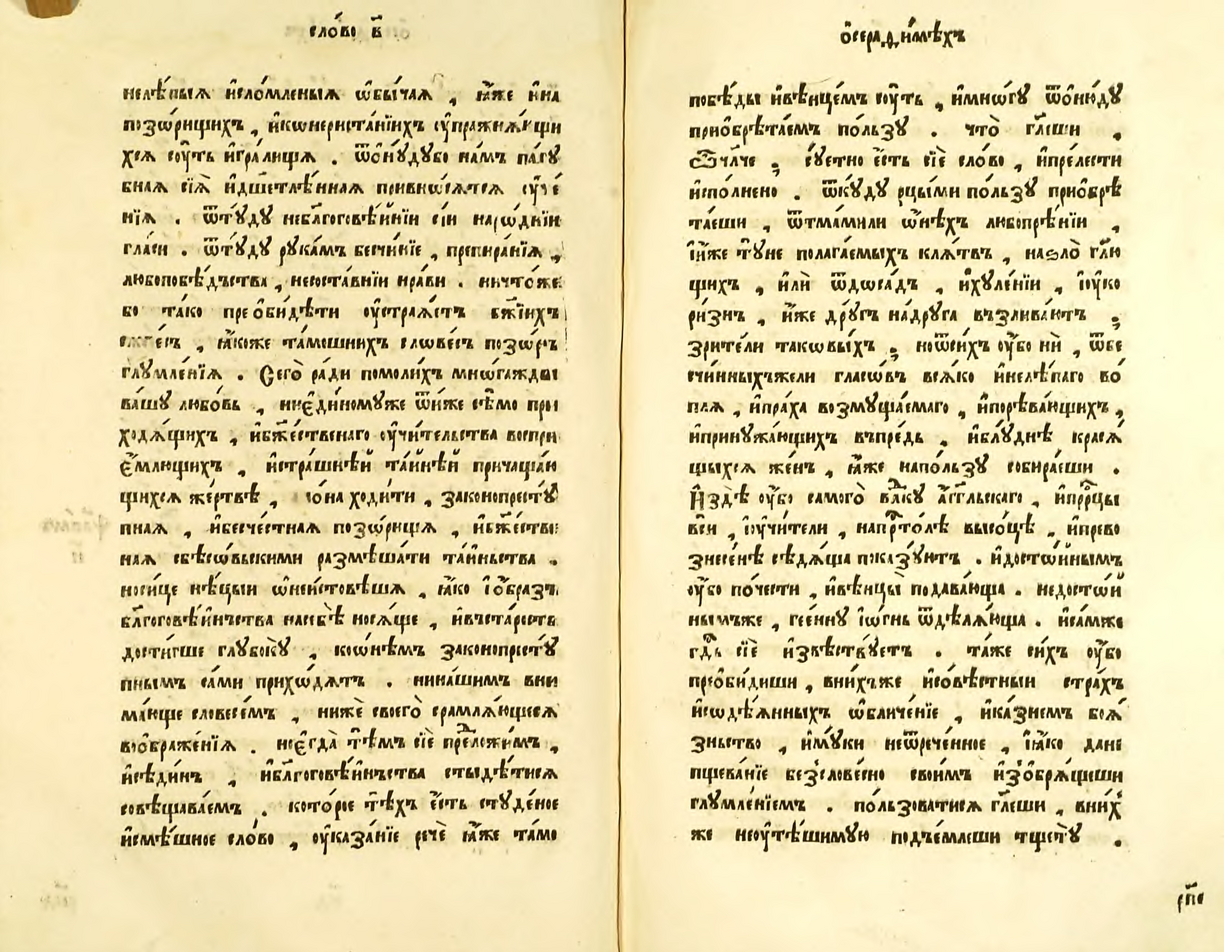 сло́во в҃
нелѣ́пыѧ и҆сло́мленыѧ ѡ҆бы́чаѧ , ꙗ҆́же и҆на
позѡ́рищихъ , и҆ко́нериста́нїихъ ѹ҆пражнѧ́ющи
хсѧ сѹ́ть и҆гра́лищѧ . ѿо́нꙋдꙋбо на́мъ па́гꙋ
бнаѧ сїѧ̀ и҆дш҃етлѣ́ннаѧ привно́сѧтсѧ ѹ҆че́
нїѧ . ѿтꙋ́дꙋ неблагоговѣ́йнїи сїи наро́днїи
гла́си . ѿтꙋ́дꙋ рꙋка́мъ бесчи́нїе , препира́нїѧ ,
любопобѣ́дьства , несоста́внїи нра́ви . ничто́же
бо та́ко прео҆би́дѣти ѹ҆строѧ́етъ бж҃їихъ
слове́съ , ꙗ҆́коже та́мошнихъ слове́съ позѡ́ръ
глꙋмле́нїѧ . Сего̀ ра́ди помоли́хъ мно́гажды
ва́шꙋ любо́вь , ниє҆ди́номꙋже ѿи҆́же сѣ́мо при
ходѧ́щихъ , и҆бж҃е́ственаго ѹ҆чи́тельства воспри
є҆́млющихъ , и҆стра́шнѣй та́йнѣй причаща́ю
щихсѧ же́ртвѣ , о҆́на ходи́ти , законопрестꙋ́
пнаѧ , и҆бесче́стнаѧ позѡ́рищѧ , и҆бж҃е́стве
наѧ сбѣсо́вьскими размѣша́ти та́иньства .
но́сице нѣ́цыи ѡ҆неи́стовѣшѧ , ꙗ҆́ко і҆о҆́бразъ
бл҃гоговѣ́йньства насебѣ̀ носѧ́ще , и҆въста́рость
дости́гше глꙋбо́кꙋ , ко́ѡ҆нѣмъ законопрестꙋ́
пнымъ са́ми прихо́дѧтъ . нина́шимъ вни
ма́юще словесе́мъ , нижѐ своего̀ срамлѧ́ющесѧ
воо҆браже́нїѧ . неє҆гда̀ тѣ́мъ сїѐ пре́дложимъ ,
и҆сѣди́нъ , и҆бл҃гоговѣ́йньства стыдѣ́тисѧ
совѣщава́емъ . кото́рое тѣ́хъ є҆́сть стꙋде́ное
и҆смѣ́шное сло́во , ѹ҆каза́нїе речѐ ꙗ҆́же та́мо
ѡ҆серафи́мѣхъ
побѣ́ды и҆вѣнце́мъ сѹ́ть , и҆мно́гꙋ ѿо́нюдꙋ
прио҆брѣта́емъ по́льзꙋ . что̀ гл҃еши ,
ѽчл҃че ; сꙋ́етно є҆́сть сїѐ сло́во , и҆пре́лести
и҆спо́лнено . ѿкꙋ́дꙋ рцы́ми по́льзꙋ прио҆брѣ
та́еши , ѿтма́мили ѡ҆́нѣхъ любопрѣ́нїи ,
і҆и҆́же тꙋ́не полага́емыхъ клѧ́твъ , наѕло̀ гл҃ю
щихъ , и҆лѝ ѿдоса́дъ , и҆хꙋле́нїи , і҆ѹ҆ко
ри́знъ , и҆́же дрꙋ́гъ на́дрꙋга възлива́ютъ ;
зри́тели таковы́хъ ; ноѿси́хъ ѹ҆́бо нѝ , ѿбе
счи́нныхъжели гласо́въ всѧ́ко и҆нелѣ́паго во́
плѧ , и҆пра́ха возмꙋща́емаго , и҆порѣва́ющихъ ,
и҆принꙋжа́ющихъ въпре́дь , и҆блꙋ́днѣ красѧ́
щыхсѧ же́нъ , ꙗ҆́же напо́льзꙋ собира́еши .
И҆здѣ̀ ѹ҆́бо самого̀ вл҃кꙋ а҆́гг҃льскаго , и҆пррⷪ҇цы
всѝ , і҆ѹ҆чи́тели , напрⷭ҇то́лѣ высо́цѣ , и҆прево
знесе́нѣ сѣдѧ́ща показꙋ́ютъ . и҆досто́йнымъ
ѹ҆́бо по́чести , и҆вѣнцы̀ подава́юща . недосто́й
нымъже , гее́ннꙋ і҆ѻ҆́гнь ѿдѣлѧ́юща . и҆са́мже
гдⷭ҇ь сїѐ и҆звѣ́ствꙋетъ . та́же си́хъ ѹ҆́бо
прео҆би́диши , вни́хъже и҆со́вѣстныи стра́хъ
и҆содѣ́ѧнныхъ ѡ҆бличе́нїе , и҆ка́знемъ боѧ́
зньство , и҆мꙋ́ки неѿре́ченное , і҆ꙗ҆́ко дане
пщева́нїе безслове́сно свои́мъ и҆зо҆брѧ́щиши
глꙋмле́нїемъ . по́льзоватисѧ гл҃еши , вни́х
же неѹ҆тѣ́шимꙋю подъе́млеши тщетꙋ̀ .
рп҃е